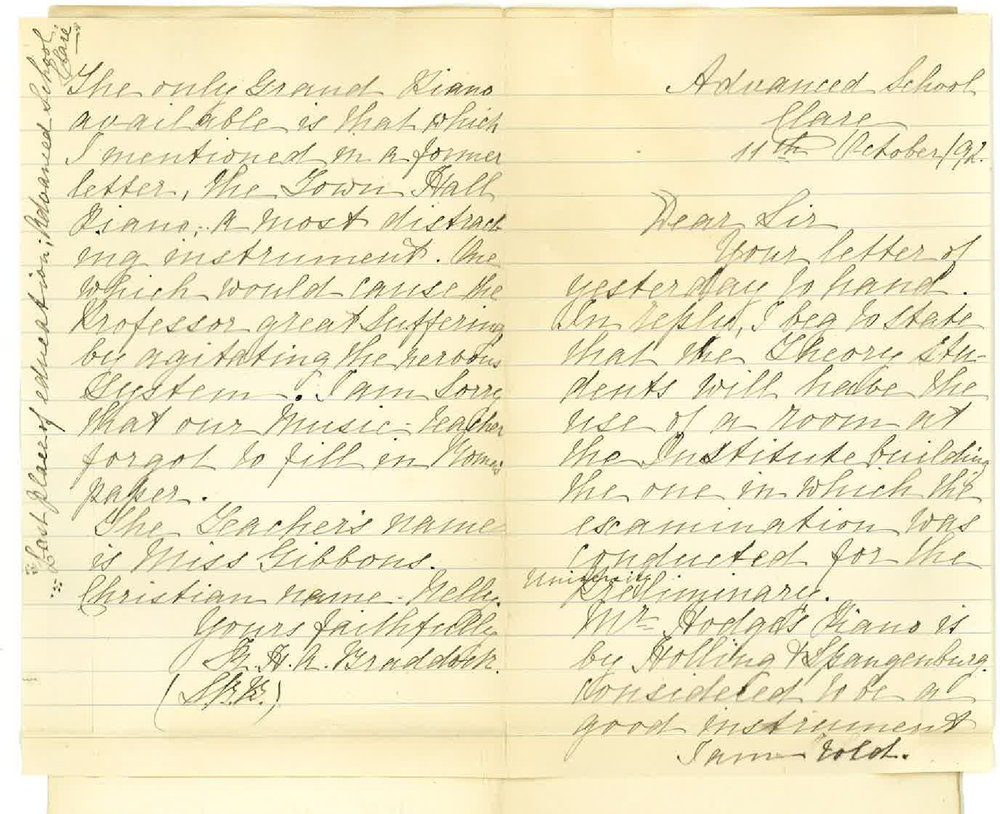 Advanced School
Clare
11th October/92.
Dear Sir
Your letter of
yesterday to hand.
In reply, I beg to state
that the Theory Stu-
dents will have the
use of a room at
the Institute building
the one in which the
examination was
conducted for the
University
Preliminary.
Mr Hodge's Piano is
by Holling & Spangenburg.
Considered to be a
good instrument
I am told.
The only Grand Piano
available is that which
I mentioned in a former
letter, the Town Hall
Piano; a most distract
ing instrument. One
which would cause the
Professor great suffering
by agitating the nervous
System. I am sorry
that our Music-teacher
forgot to fill in
paper.
The Teacher's name
is Miss Gibbons.
Christian name - Nelly.
Yours faithfully
H. A. Braddock.
Last place of education; Advanced School,
Clare